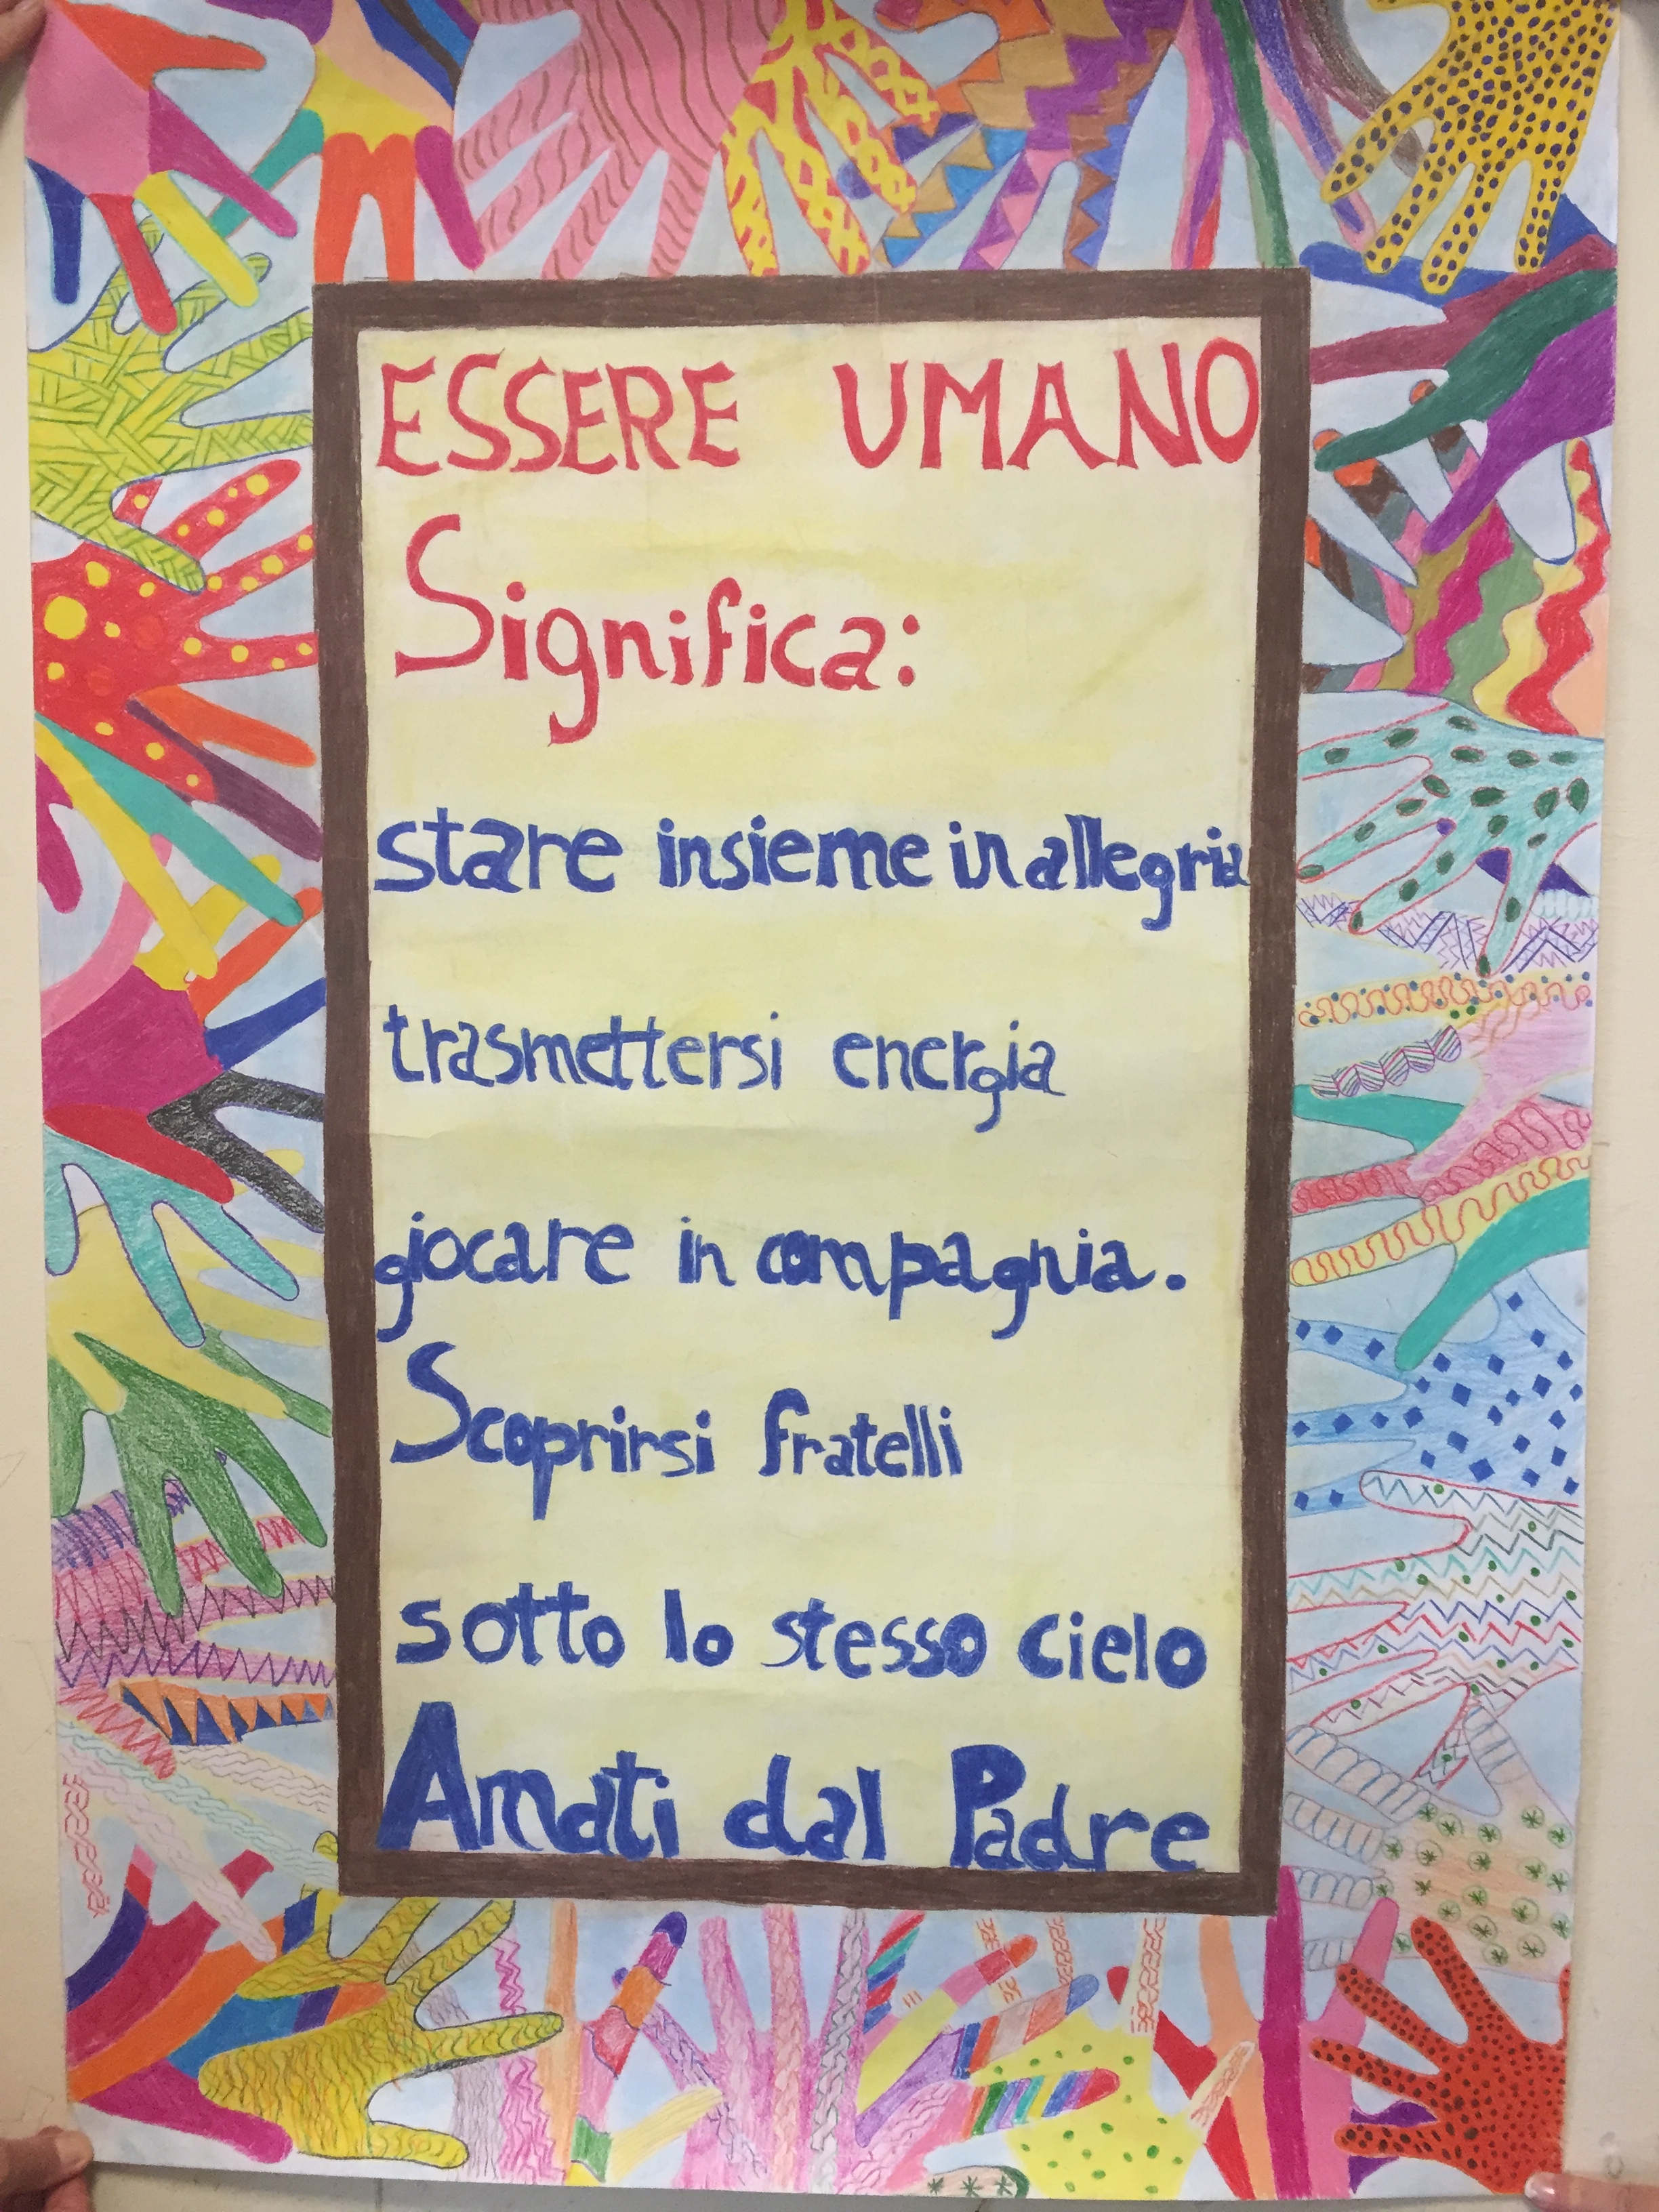 ESSERE UMANO
Significa:
stare insieme in allegria
trasmettersi energia
giocare in compagnia.
Scoprirsi fratelli
sotto lo stesso cielo
Amati dal Padre